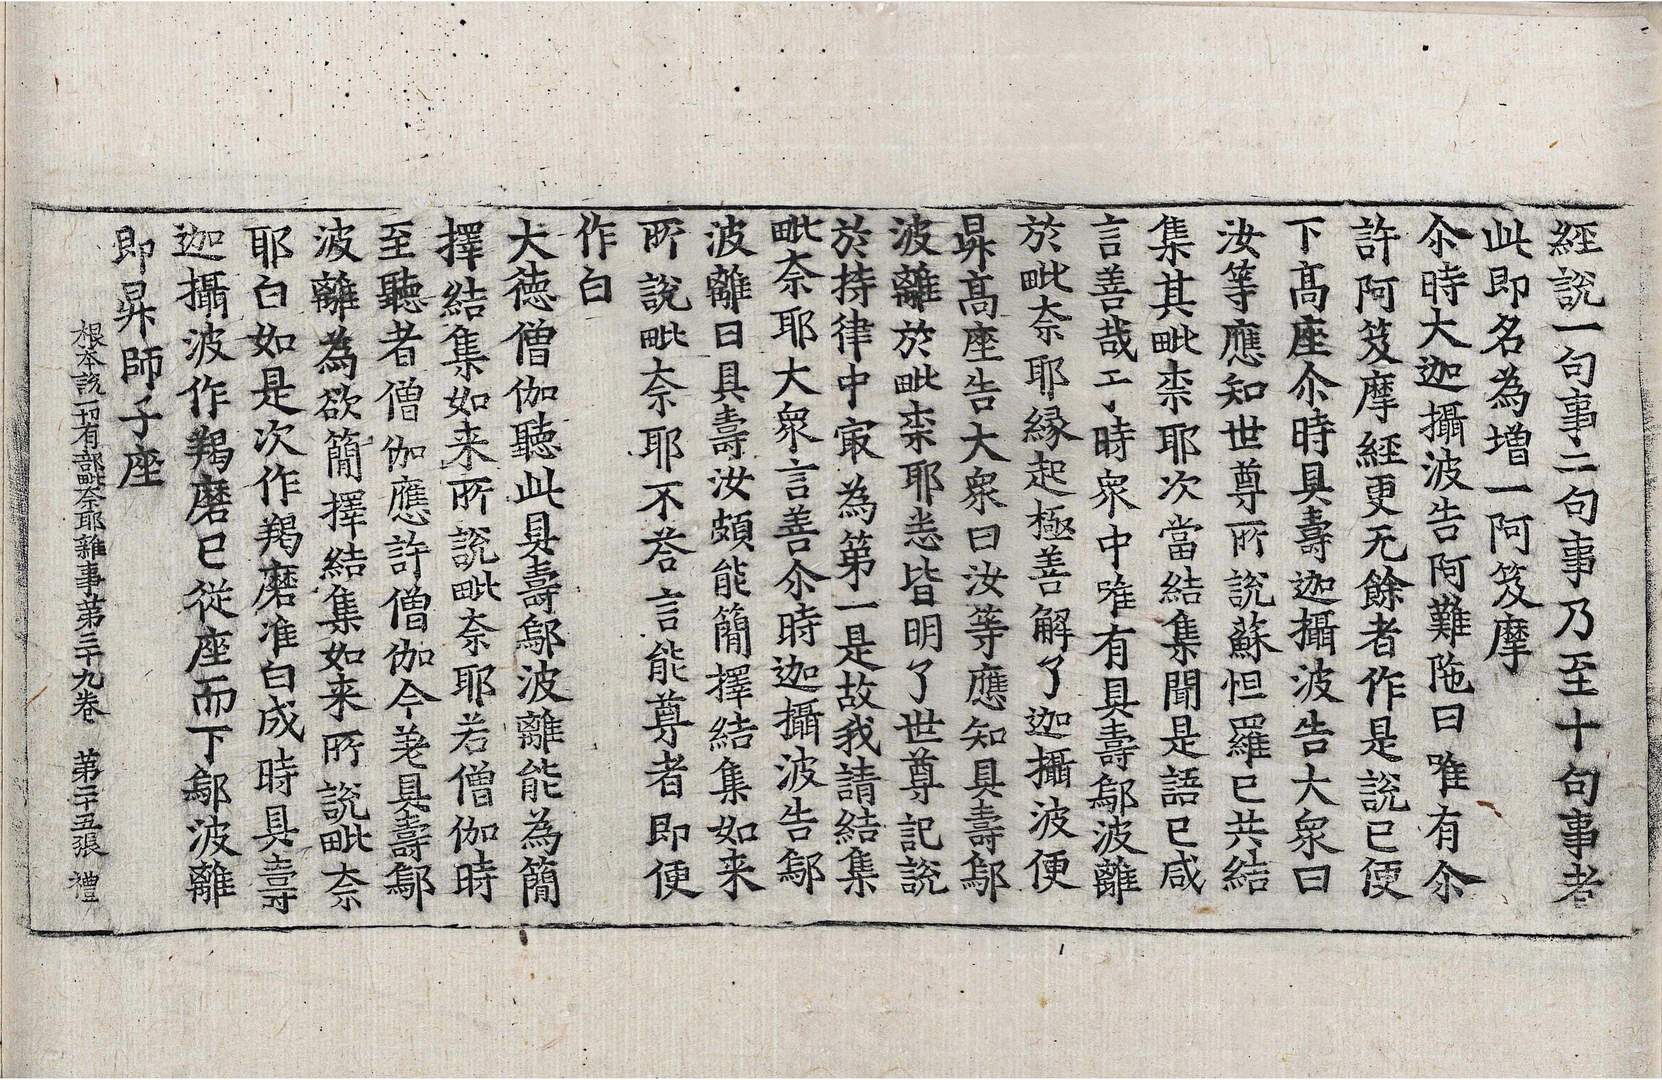 經說一句事二句事乃至十句事者
此即名為增一阿笈摩
尒時大迦攝波告阿難陁曰唯有尒
許阿笈摩經更无餘者作是說已便
下髙座尒時具壽迦攝波告大衆曰
汝等應知世尊所說蘇怛羅已共結
集其毗柰耶次當結集聞是語已咸
言善哉于時衆中唯有具壽鄔波離
於毗奈耶縁起極善解了迦攝波便
昇髙座告大衆曰汝等應知具壽鄔
波離於毗柰耶悉皆明了世尊記說
於持律中㝡為第一是故我請結集
毗奈耶大衆言善尒時迦攝波告鄔
波離曰具壽汝頗能簡擇結集如来
所說毗奈耶不荅言能尊者即便
作白
大徳僧伽聽此具壽鄔波離能為簡
擇結集如来所說毗奈耶若僧伽時
至聽者僧伽應許僧伽今差具壽鄔
波離為欲簡擇結集如来所說毗奈
耶白如是次作羯磨准白成時具壽
迦攝波作羯磨已從座而下鄔波離
即昇師子座
根本說一切有部毗奈耶雜事第三十九卷　第二十五張　禮